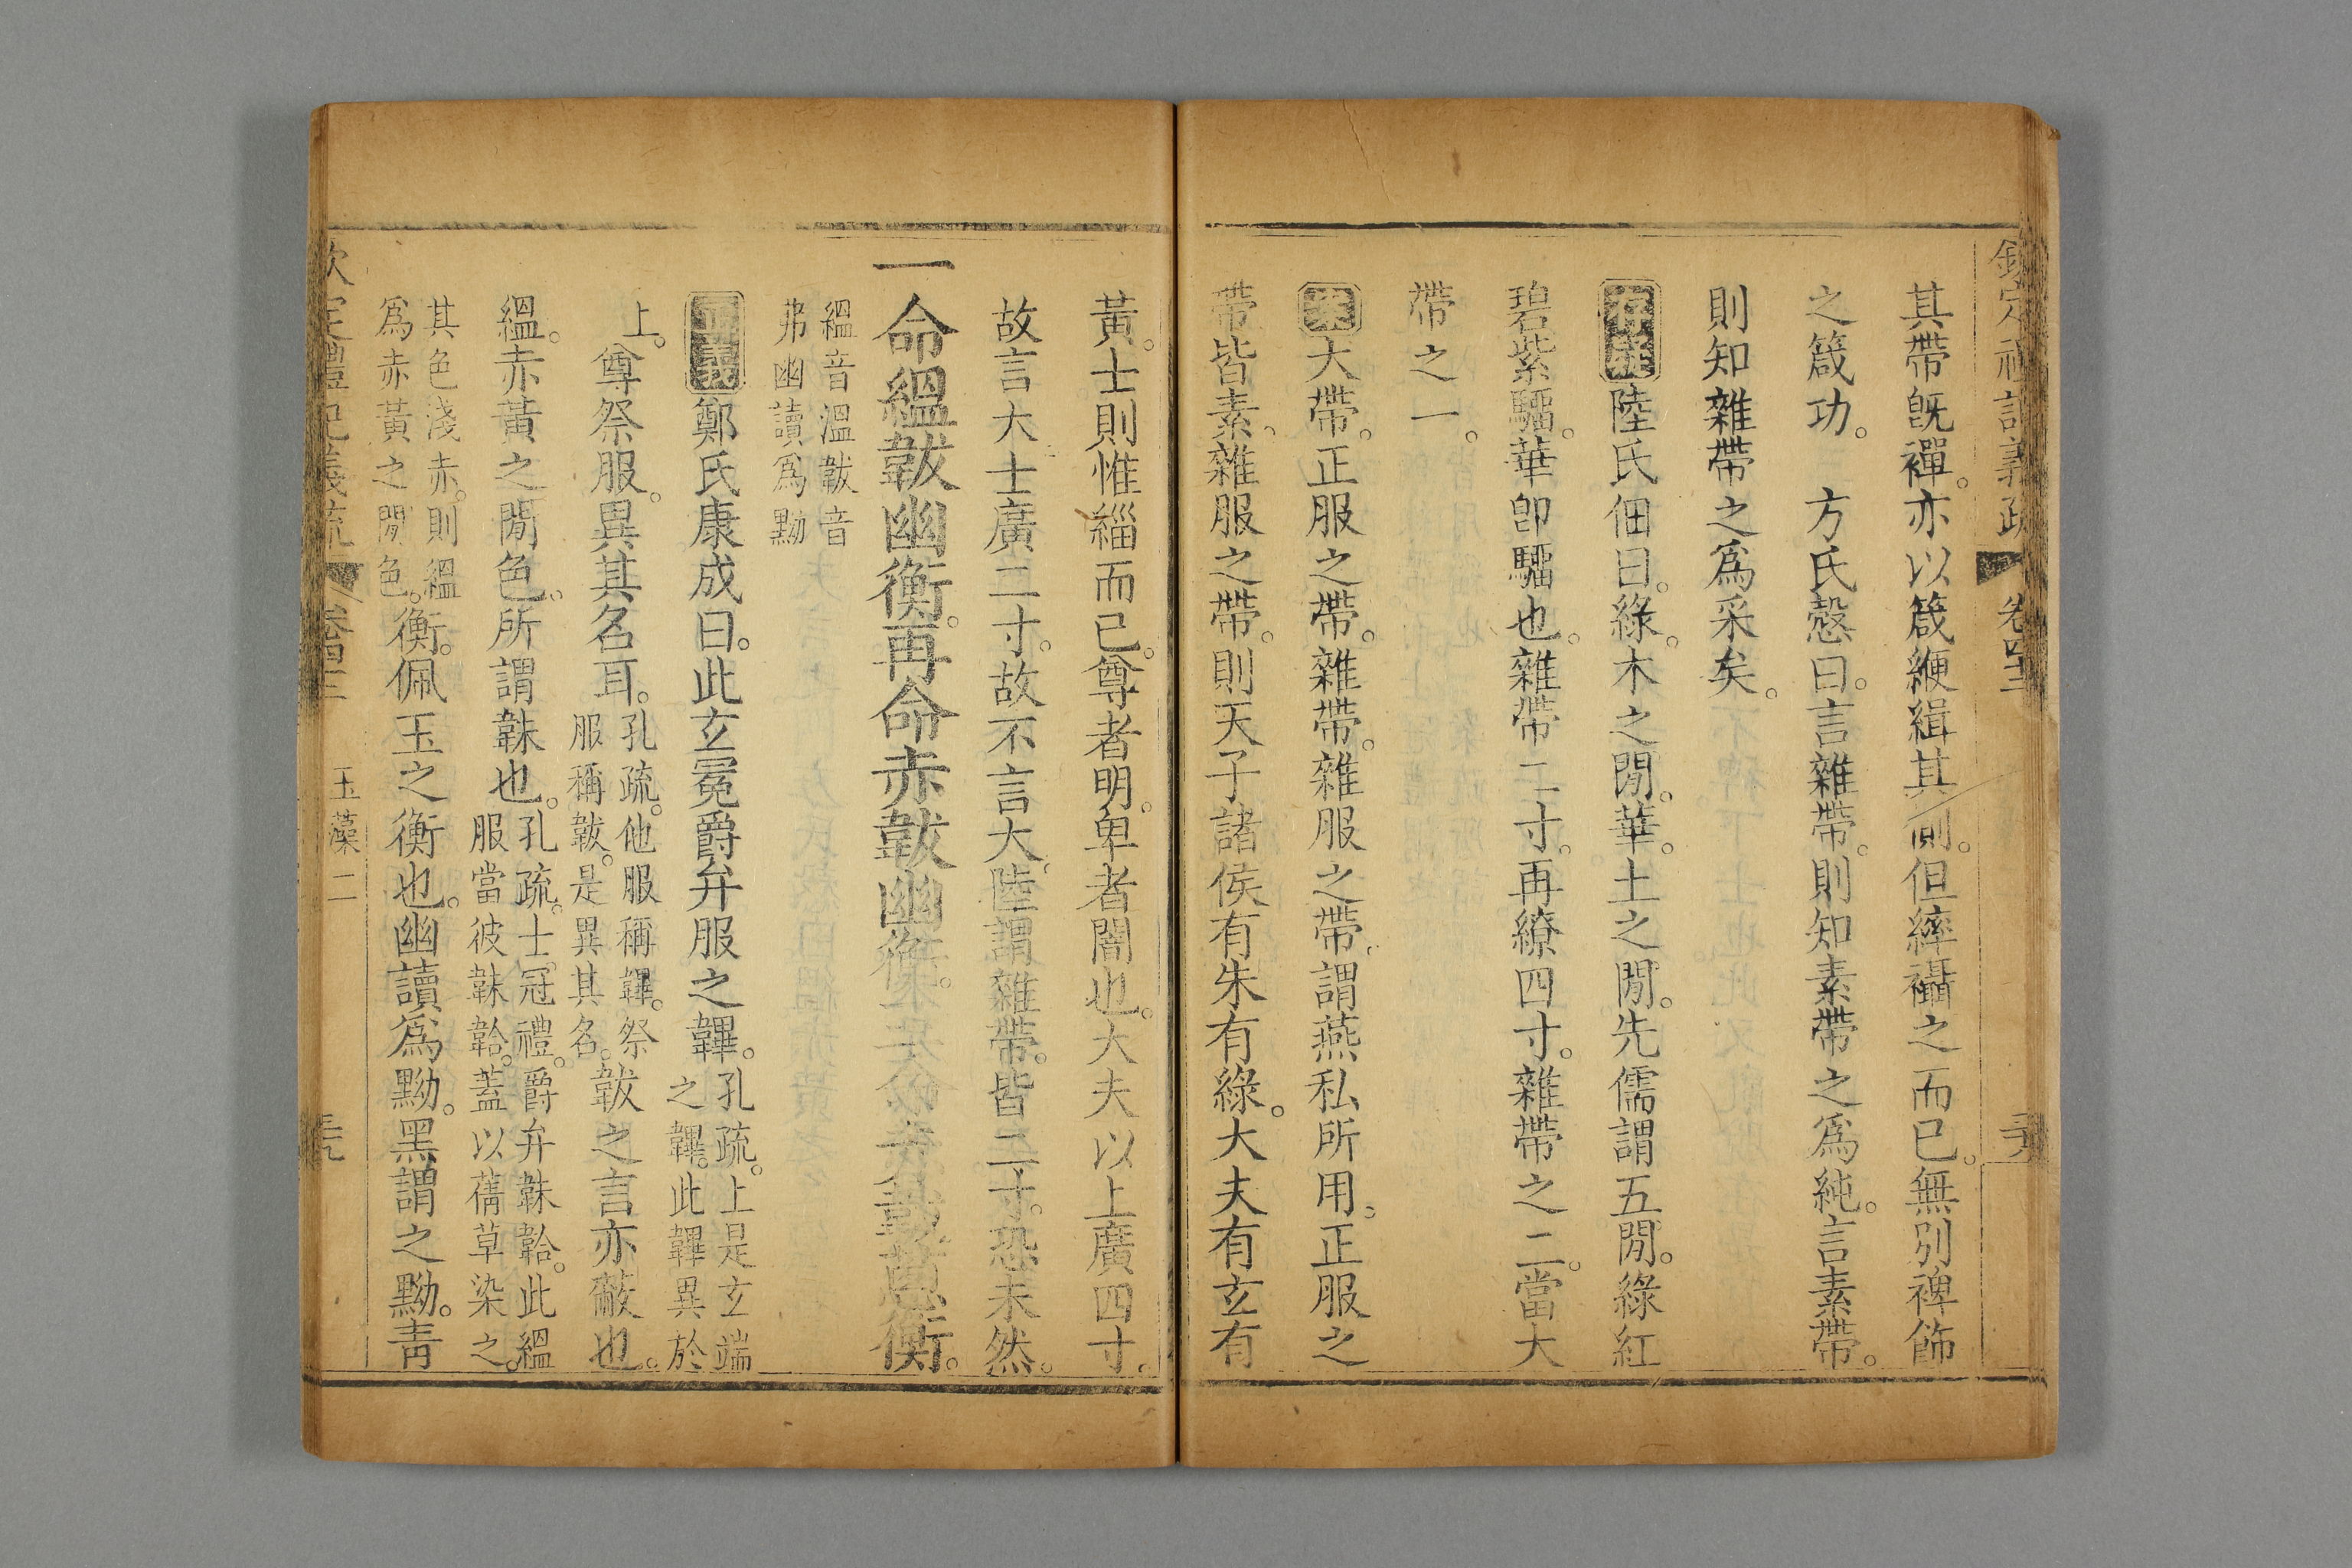 欽定禮記義疏 卷四十三
其帶旣襌。亦以箴緶緝其側。但繂襵之而已。無別裨飾
之箴功。 方氏慤曰。言雜帶。則知素帶之爲純。言素帶。
則知雜帶之爲采矣。
存疑陸氏佃曰。綠。木之閒。華。土之閒。先儒謂五閒。綠紅
碧紫騮。華卽騮也。雜帶二寸。再繚四寸。雜帶之二。當大
帶之一。
案大帶。正服之帶。雜帶。雜服之帶。謂燕私所用。正服之
帶皆素。雜服之帶。則天子諸侯有朱有綠。大夫有玄有
黃。士則惟緇而已。尊者明。卑者闇也。大夫以上廣四寸。
故言大士廣二寸。故不言大。陸謂雜帶。皆二寸。恐未然。
一命縕韍幽衡。再命赤韍幽衡。三命赤韍蔥衡。
縕音溫韍音
弗幽讀爲黝
正義鄭氏康成曰。此玄冕爵弁服之韠。孔疏。上是玄端
之韠。此韠異於
上。尊祭服。異其名耳。孔疏。他服稱韠。祭
服稱韍。是異其名。韍之言亦蔽也。
縕。赤黃之閒色。所謂韎也。孔疏。士冠禮。爵弁韎韐。此縕
服當彼韎韐。蓋以蒨草染之。
其色淺赤。則縕
爲赤黃之閒色。衡。佩玉之衡也。幽讀爲黝。黑謂之黝。靑
欽定禮記義疏 卷四十三 玉藻二